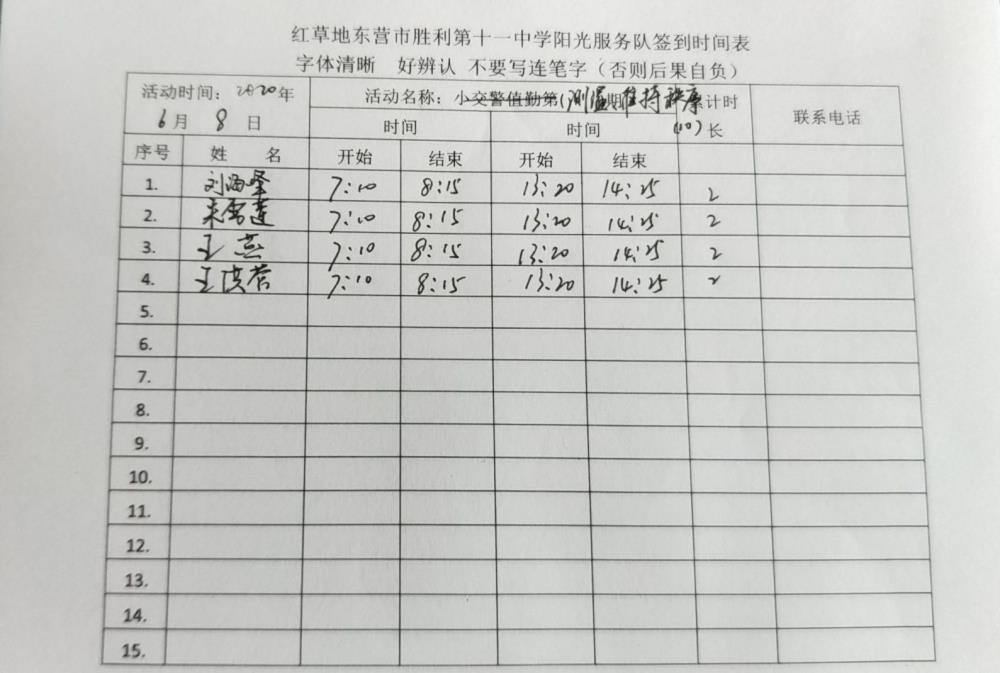 红草地东营市胜利第十一中学阳光服务队签到时间表
字体清晰 好辨认 不要写连笔字（否则后果自负）
活动时间：2020年 活动名称：小交警值勤第(测温,维持秩序 期 累计时 联系电话
6月 8日 时间 时间 (10) 长
序号 姓 名 开始 结束 开始 结束
1. 刘海峰 7:10 8:15 13:20 14:25 2
2. 7:10 8:15 13:20 14:25 2
3. 王燕 7:10 8:15 13:20 14:25 2
4. 王洪营 7:10 8:15 13:20 14:25 2
5.
6.
7.
8.
9.
10.
11.
12.
13.
14.
15.